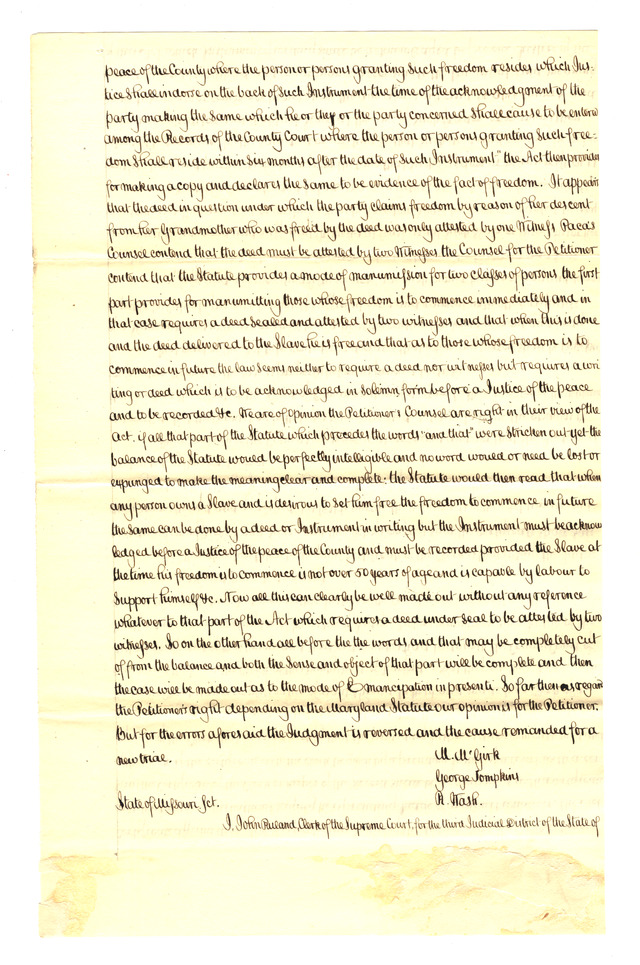 peace of the County where the person or persons granting Such freedom resides which Jus-
tice Shall indorse on the back of Such Instrument the time of the acknowledgment of the
party making the same which he or they or the party concerned Shall cause to be entered
among the Records of the County Court where the person or persons granting Such free-
dom Shall reside within Six months after the date of Such Instrument" the Act then provides
for making a copy and declares the same to be evidence of the fact of freedom. It appears
that the deed in question under which the party claims freedom by reason of her descent
from her Grandmother who was freed by the deed was only attested by one Witness Paca's
Counsel contend that the deed must be attested by two Witnesses the Counsel for the Petitioner
contend that the Statute provides a mode of manumission for two classes of persons the first
part provides for manumitting those whose freedom is to commence immediately and in
that case requires a deed sealed and attested by two witnesses and that when this is done
and the deed delivered to the Slave he is free and that as to those whose freedom is to
commence in future the law seems neither to require a deed nor witnesses but requires a wri
ting or deed which is to be acknowledged in solemn form before a Justice of the peace
and to be recorded &c. We are of opinion the Petitioner's Counsel are right in their view of the
Act. if all that part of the Statute which precedes the words "and that" were Stricken out yet the
balance of the Statute would be perfectly intelligible and no word would or need be lost or
expunged to make the meaning clear and complete: the Statute would then read that when
any person owns a Slave and is desirous to set him free the freedom to commence in future
the same can be done by a deed or Instrument in writing but the Instrument must be acknow
ledged before a Justice of the peace of the County and must be recorded provided the Slave at
the time his freedom is to commence is not over 50 years of age and is capable by labour to
Support himself &c. Now all this can clearly be well made out without any reference
whatever to that part of the Act which requires a deed under seal to be attested by two
witnesses. So on the other hand all before the the words and that may be completely cut
of from the balance and both the Sense and object of that part will be complete and then
the case will be made out as to the mode of Emancipation in presenti. So far then as regards
the Petitioner's right depending on the Maryland Statute our opinion is for the Petitioner.
But for the errors aforesaid the Judgment is reversed and the cause remanded for a
new trial.
M. McGirk
George Tompkins
R. Wash.
State of Missouri Sct.
I, John Ruland, Clerk of the Supreme Court, for the third Judicial District of the State of